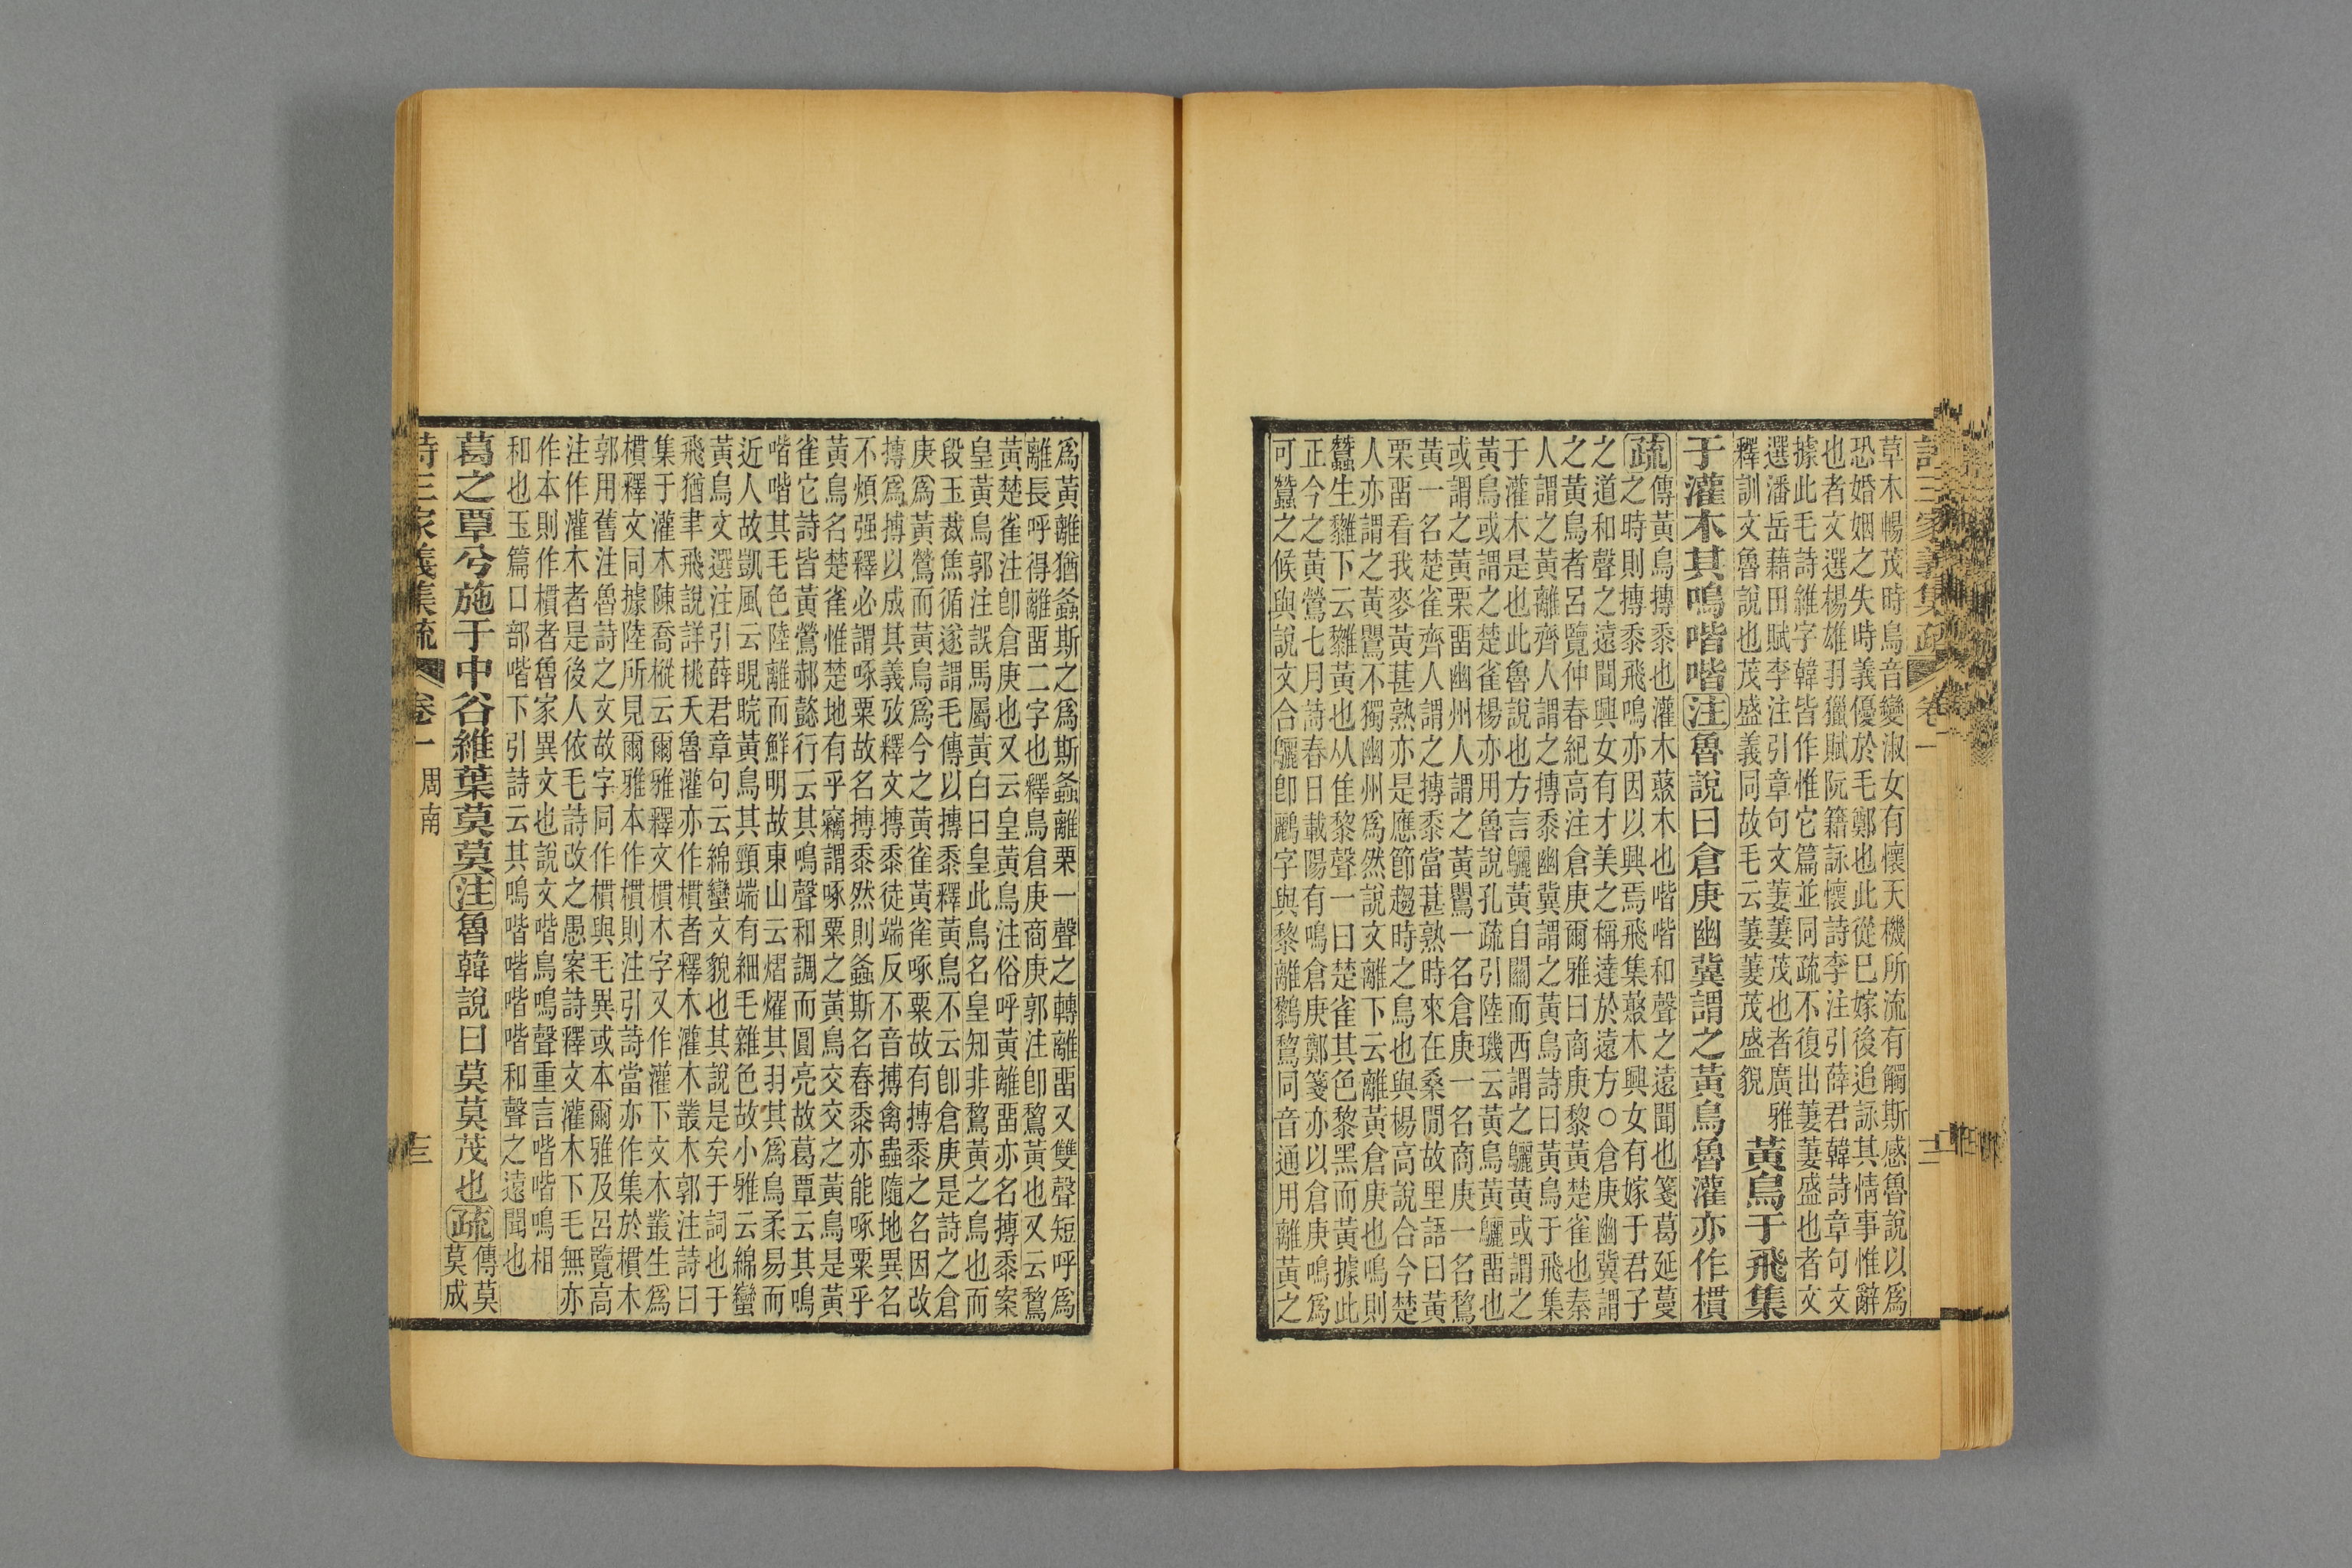 詩三家義集疏 卷一
草木暢茂時鳥音變淑女有懷天機所流有觸斯感魯說以爲
恐婚姻之失時義優於毛鄭也此從巳嫁後追詠其情事惟辭
也者文選楊雄羽獵賦阮籍詠懷詩李注引薛君韓詩章句文
據此毛詩維字韓皆作惟它篇並同疏不復出萋萋盛也者文
選潘岳藉田賦李注引章句文萋萋茂也者廣雅
釋訓文魯說也茂盛義同故毛云萋萋茂盛貌
黃鳥于飛集
于灌木其鳴喈喈注魯說曰倉庚幽冀謂之黃鳥魯灌亦作樌
疏傳黃鳥搏黍也灌木藂木也喈喈和聲之遠聞也箋葛延蔓
之時則搏黍飛鳴亦因以興焉飛集藂木興女有嫁于君子
之道和聲之遠聞興女有才美之稱達於遠方○倉庚幽冀謂
之黃鳥者呂覽仲春紀高注倉庚爾雅曰商庚黎黃楚雀也秦
人謂之黃離齊人謂之搏黍幽冀謂之黃鳥詩曰黃鳥于飛集
于灌木是也此魯說也方言鸝黃自關而西謂之鸝黃或謂之
黃鳥或謂之楚雀楊亦用魯說孔疏引陸璣云黃鳥黃鸝畱也
或謂之黃栗畱幽州人謂之黃鸎一名倉庚一名商庚一名鵹
黃一名楚雀齊人謂之搏黍當葚熟時來在桑閒故里語曰黃
栗畱看我麥黃葚熟亦是應節趨時之鳥也與楊高說合今楚
人亦謂之黃鸎不獨幽州爲然說文離下云離黃倉庚也鳴則
蠶生雞下云雞黃也从隹黎聲一曰楚雀其色黎黑而黃據此
正今之黃鶯七月詩春日載陽有鳴倉庚鄭箋亦以倉庚鳴爲
可蠶之候與說文合鸝卽鸝字與黎離鶖鵹同音通用離黃之
爲黃離猶螽斯之爲斯螽離栗一聲之轉離畱又雙聲短呼爲
離長呼得離畱二字也釋鳥倉庚商庚郭注卽鵹黃也又云鵹
黃楚雀注卽倉庚也又云皇黃鳥注俗呼黃離畱亦名搏黍案
皇黃鳥郭注誤馬屬黃白曰皇此鳥名皇知非鵹黃之鳥也而
段玉裁焦循遂謂毛傳以搏黍釋黃鳥不云卽倉庚是詩之倉
庚爲黃鶯而黃鳥爲今之黃雀黃雀啄粟故有搏黍之名因改
摶爲搏以成其義攷釋文搏黍徒端反不音搏禽蟲隨地異名
不煩强釋必謂啄粟故名搏黍然則螽斯名舂黍亦能啄粟乎
黃鳥名楚雀惟楚地有乎竊謂啄粟之黃鳥交交之黃鳥是黃
雀它詩皆黃鶯郝懿行云其鳴聲和調而圓亮故葛覃云其鳴
喈喈其毛色陸離而鮮明故東山云熠燿其羽其爲鳥柔易而
近人故凱風云睍睆黃鳥其頸端有細毛雜色故小雅云綿蠻
黃鳥文選注引薛君章句云綿蠻文貌也其說是矣于詞也于
飛猶聿飛說詳桃夭魯灌亦作樌者釋木灌木叢木郭注詩曰
集于灌木陳喬樅云爾雅釋文樌木字又作灌下文木叢生爲
樌釋文同據陸所見爾雅本作樌則注引詩當亦作集於樌木
郭用舊注魯詩之文故字同作樌與毛異或本爾雅及呂覽高
注作灌木者是後人依毛詩改之愚案詩釋文灌木下毛無亦
作本則作樌者魯家異文也說文喈鳥鳴聲重言喈喈鳴相
和也玉篇口部喈下引詩云其鳴喈喈喈喈和聲之遠聞也
葛之覃兮施于中谷維葉莫莫注魯韓說曰莫莫茂也疏傳莫
莫成
詩三家義集疏 卷一 周南 十三